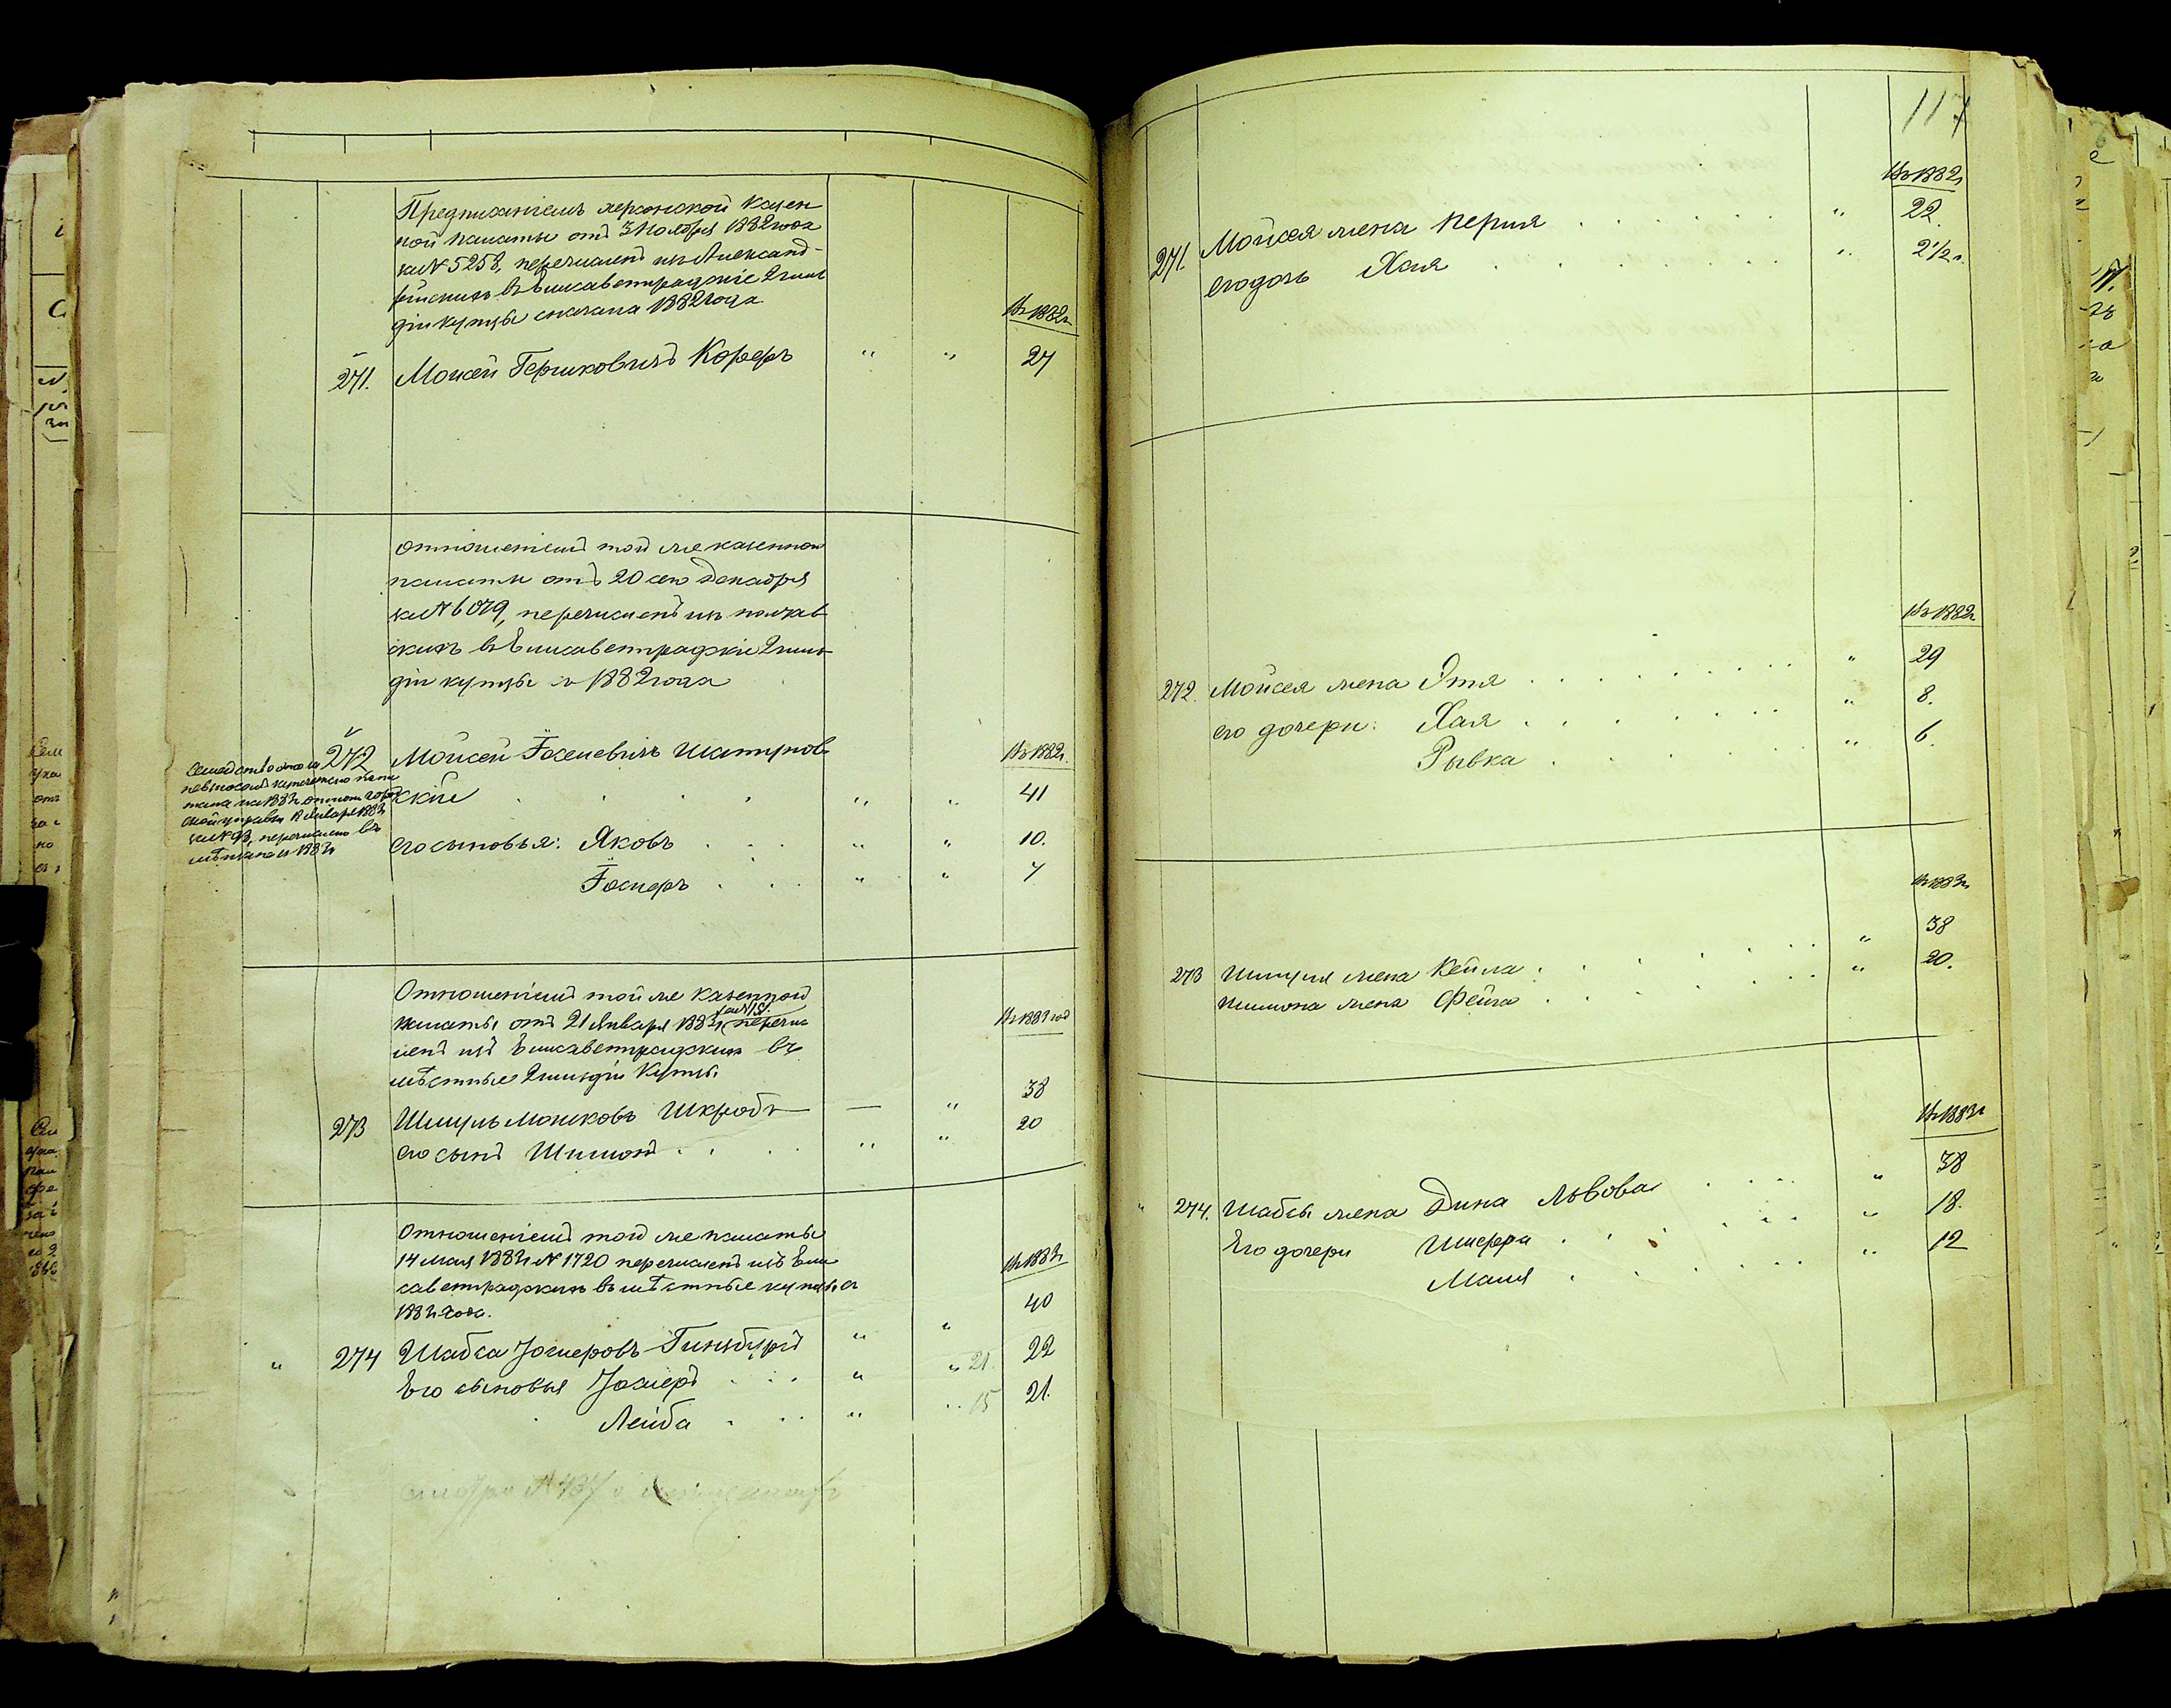 Предписаніемъ херсонской Казен
ной палаты отъ 3 Ноября 1882 года
за № 5258, перечисленъ изъ Александ-
рійскихъ въ Елисаветградскіе 2 гиль
діи купцы сначала 1882 года
Въ 1882 г.
271. Мойсей Гершковичъ Коферъ " " 27
Отношеніемъ той же казенной
палаты отъ 20 сего Декабря
за № 6079, перечисленъ изъ полтав
скихъ въ Елисаветградскіе 2 гиль
діи купцы съ 1882 года
272 Мойсей Іоселевичъ Шатунов
скій " " 41
Въ 1882 г.
Семейство это за
невзносомъ купеческаго
на 1883 г. отнош. город
ской управы Января 1883 г.
за № 93, перечислено въ
мѣщане съ 1883 г.
его сыновья: Яковъ " " 10.
Іосиеръ " " 7
Отношеніемъ той же казенной
палаты отъ 21 Января 1883 г. за № 151. перечис
ленъ изъ Елисаветградскихъ въ
мѣстные 2 гильдіи Купцы
Въ 1883 год
273 Шмуль Мошковъ Шкробъ — " 38
его сынъ Шимонъ " " 20
Отношеніемъ той же палаты
14 мая 1883 г. № 1720 перечисленъ изъ Ели
саветградскихъ въ мѣстные купцы съ
1883 года.
Въ 1883 г.
" 274 Шабса Іосиеровъ Гинзбургъ " " 40
Его сыновья Іосиеръ " " 21. 22
Лейба " " 15 21.
117
Въ 1882 г.
271. Мойсея жена Перля " 22.
его дочь Хая " 2 1/2 г.
Въ 1882 г.
272. Мойсея жена Этя " 29
его дочери: Хая " 8.
Рывка " 6.
Въ 1883 г.
273 Шмуля жена Кейла " 38
Шимона жена Фейга " 20.
Въ 1883 г.
" 274. Шабсы жена Дина Львова " 38
Его дочери Шифра " 18.
Маня " 12